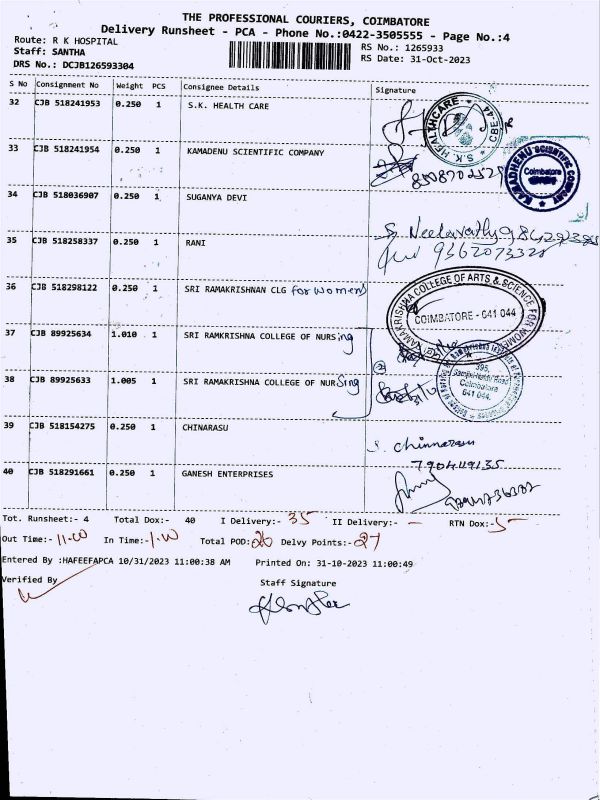 THE PROFESSIONAL COURIERS, COIMBATORE
Delivery Runsheet - PCA - Phone No.:0422-3505555 - Page No.:4
Route: R K HOSPITAL
RS No.: 1265933
Staff: SANTHA
RS Date: 31-Oct-2023
DRS No.: DCJB126593304
S No Consignment No Weight PCS Consignee Details Signature
32 CJB 518241953 0.250 1 S.K. HEALTH CARE
S.K. HEALTHCARE CBE-44
33 CJB 518241954 0.250 1 KAMADENU SCIENTIFIC COMPANY
KAMADHENU SCIENTIFIC COMPANY Coimbatore
34 CJB 518036907 0.250 1 SUGANYA DEVI
S. Neelavathy
35 CJB 518258337 0.250 1 RANI
9362073328
36 CJB 518298122 0.250 1 SRI RAMAKRISHNAN CLG for women
RAMAKRISHNA COLLEGE OF ARTS & SCIENCE FOR WOMEN
COIMBATORE - 641 044
37 CJB 89925634 1.010 1 SRI RAMKRISHNA COLLEGE OF NURSing
②
395,
Coimbatore
641 044.
38 CJB 89925633 1.005 1 SRI RAMKRISHNA COLLEGE OF NURSing
39 CJB 518154275 0.250 1 CHINARASU
S. Chinnarasu
40 CJB 518291661 0.250 1 GANESH ENTERPRISES
Tot. Runsheet:- 4 Total Dox:- 40 I Delivery:- 35 II Delivery:- - RTN Dox:- 5
Out Time:- 11.00 In Time:- 1.00 Total POD: 26 Delvy Points:- 27
Entered By :HAFEEFAPCA 10/31/2023 11:00:38 AM Printed On: 31-10-2023 11:00:49
Verified By Staff Signature